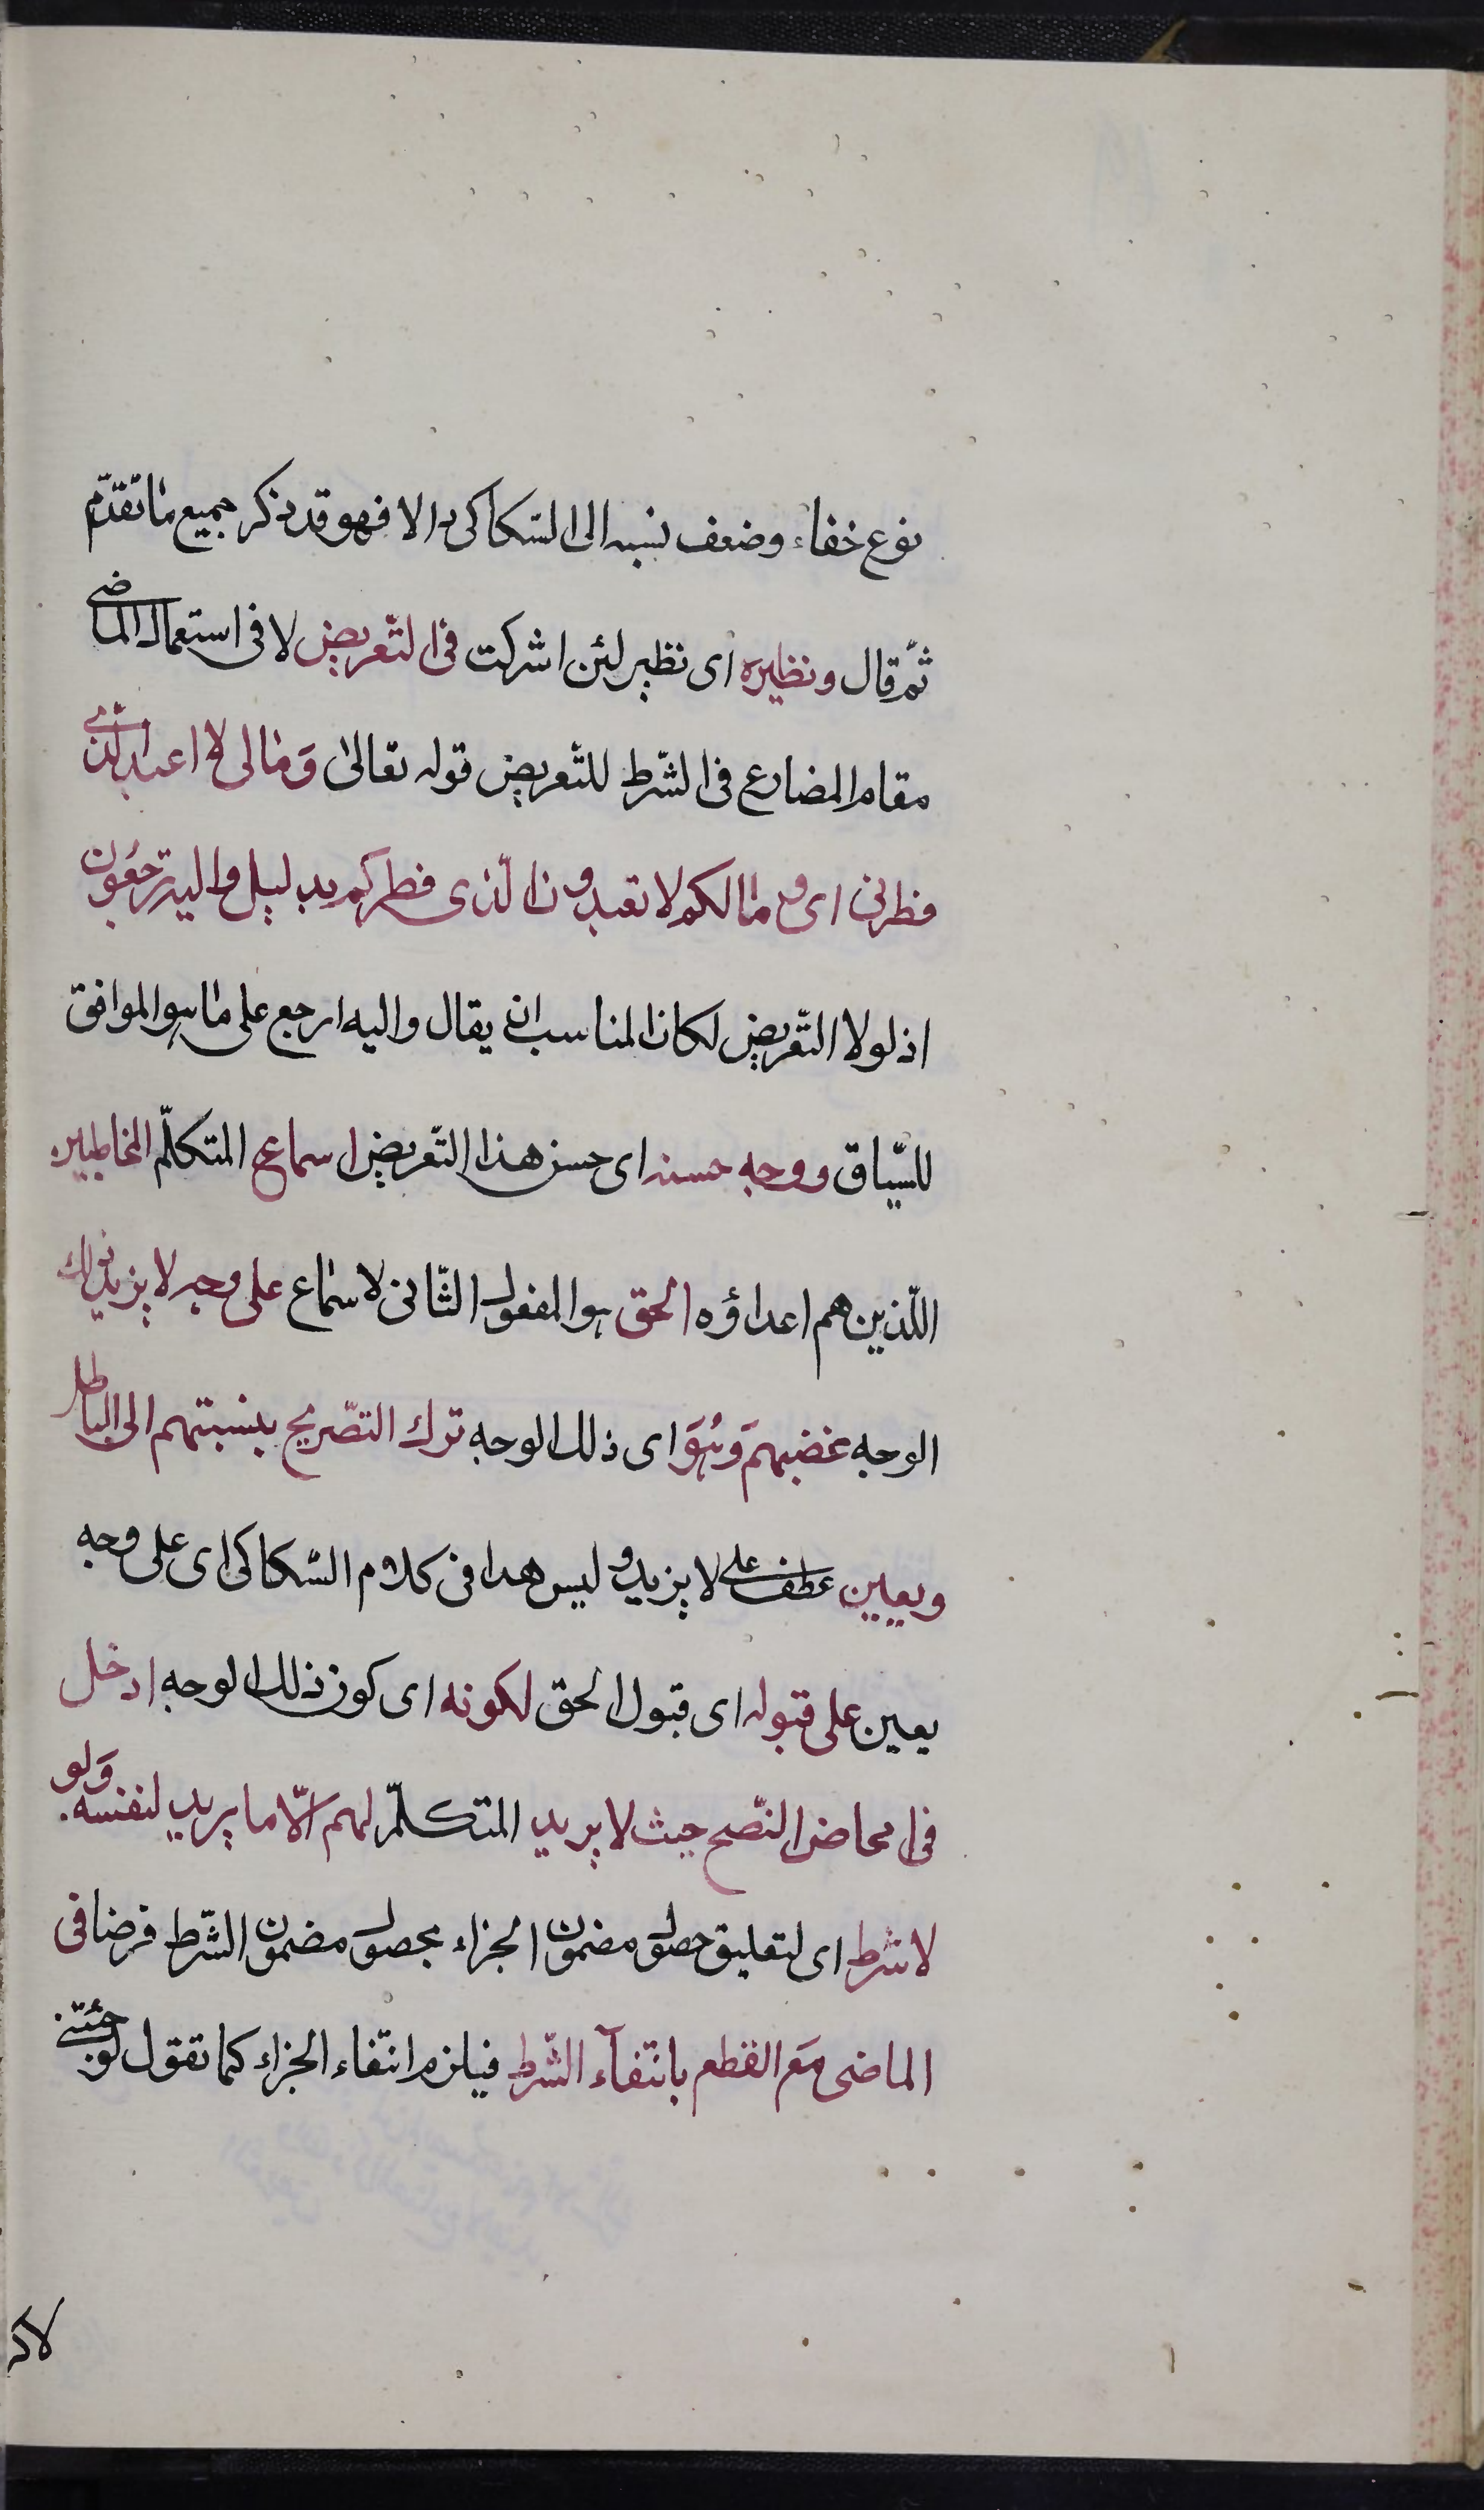 نوع خفاء وضعف نسبه الى السّكاكى والا فهو قد ذكر جميع ما تقدّم
ثمّ قال ونظيره اى نظير لئن اشركت فى التّعريض لا فى استعمال الماضى
مقام المضارع فى الشّرط للتّعريض قوله تعالى وَما لى لا اعبد الّذى
فطرنى اى وما لكم لا تعبدون الّذى فطركم بدليل واليه ترجعُون
اذ لولا التّعريض لكان المناسب ان يقال واليه ارجع على ما هو الموافق
للسّياق ووجه حسنه اى حسن هذا التّعريض اسماع المتكلّم المخاطبين
اللّذين هم اعداؤه الحق هو المفعول الثّانى لاسماع على وجه لا يزيد ذلك
الوجه غضبهم وَهُوَ اى ذلك الوجه ترك التصّريح بنسبتهم الى الباطل
ويعين عطف على لا يزيد وليس هذا فى كلام السّكاكى اى على وجه
يعين على قبوله اى قبول الحق لكونه اى كون ذلك الوجه ادخل
فى امحاض النّصح حيث لا يريد المتكلّم لهم الّا ما يريد لنفسه. وَلو
لاشرط اى لتعليق حصول مضمون الجزاء بحصول مضمون الشّرط فرضا فى
الماضى مَع القطع بانتفآء الشّرط فيلزم انتفاء الجزاء كما تقول لو جئتنى
لاكر